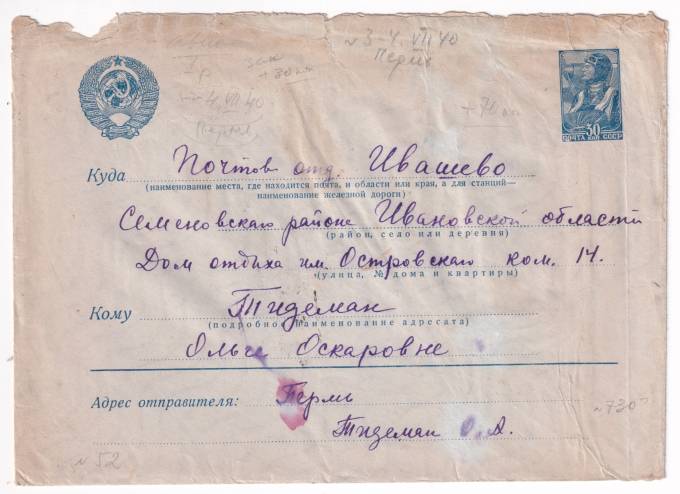 № 3-4.VII 40
Пермь
Iр
зак
4.VII 40
Пермь
+ 70 коп
30
ПОЧТА КОП СССР
Куда Почтов отд. Ивашево
(наименование места, где находится почта, и области или края, а для станций—
наименование железной дороги)
Семеновскаго районе Ивановской области
(район, село или деревня)
Дом отдыха им. Островскаго ком. 14.
(улица, № дома и квартиры)
Кому Тидеман
(подробное наименование адресата)
Ольге Оскаровне
Адрес отправителя: Пермь
Тидеман О. А.
~730
№ 52